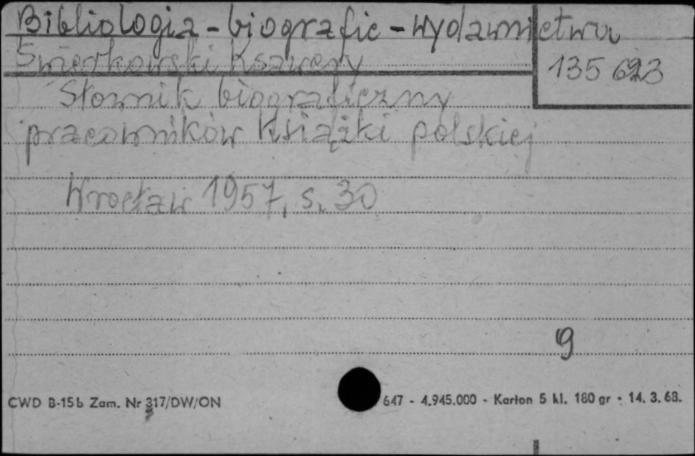 Bibliologia - biografie - wydawnictwa
Świerkowski Ksawery
135 623
Słownik biograficzny
pracowników książki polskiej
Wrocław 1957, s. 30
9
CWD B-15b Zam. Nr 317/DW/ON 647 - 4.945.000 - Karton 5 kl. 180 gr - 14. 3. 68.